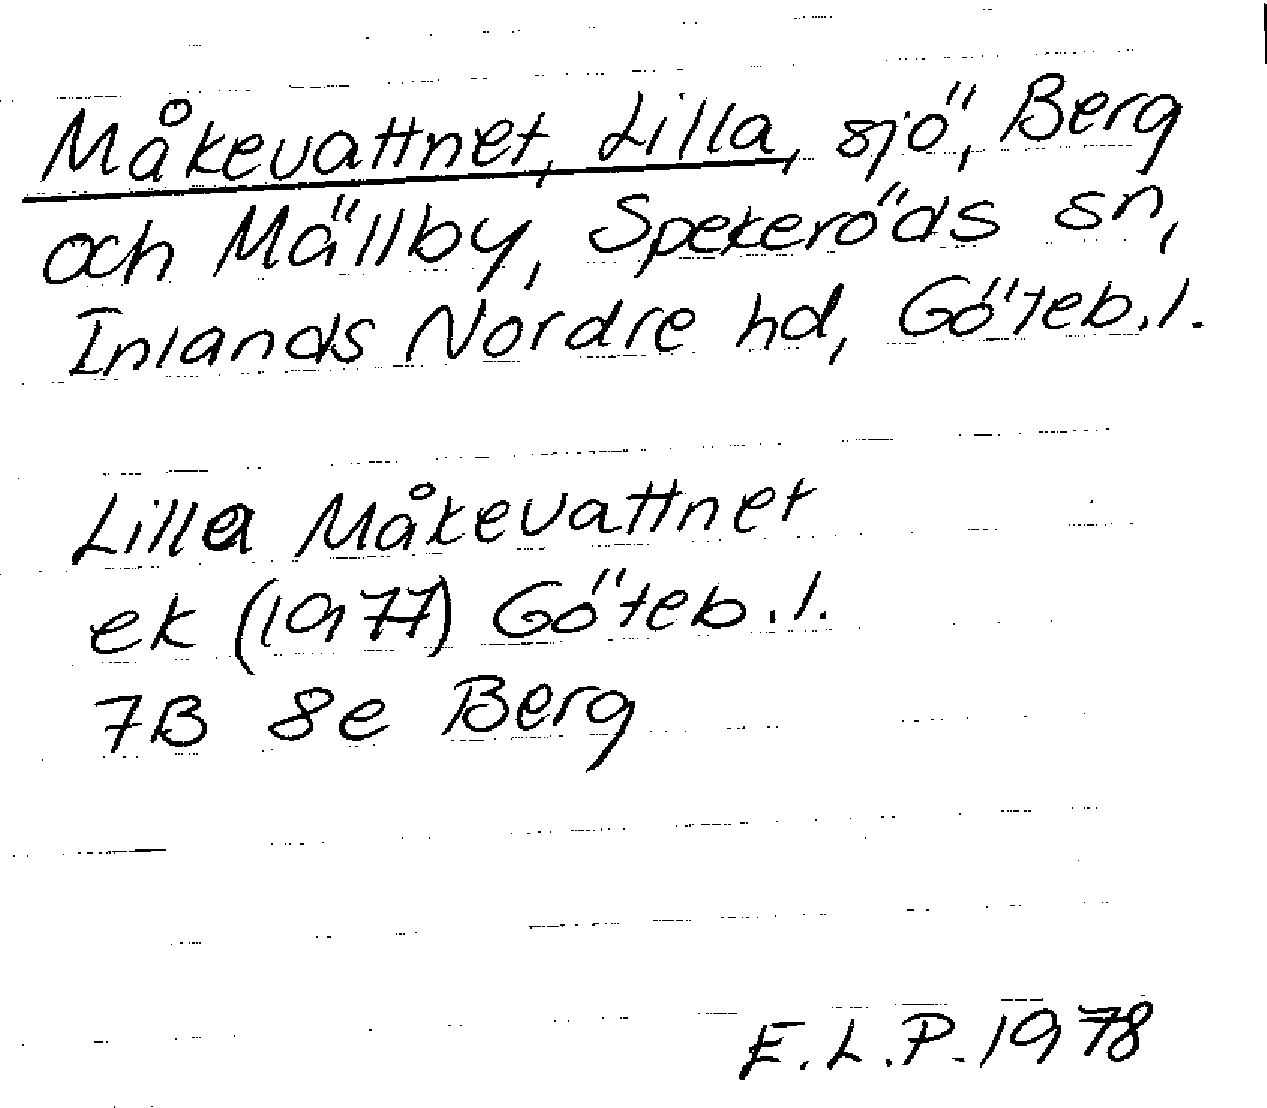 Måkevattnet, Lilla, sjö, Berg
och Mällby, Spekeröds sn,
Inlands Nordre hd, Göteb.l.
Lilla Måkevattnet
ek (1977) Göteb.l.
7B 8e Berg
E.L.P. 1978